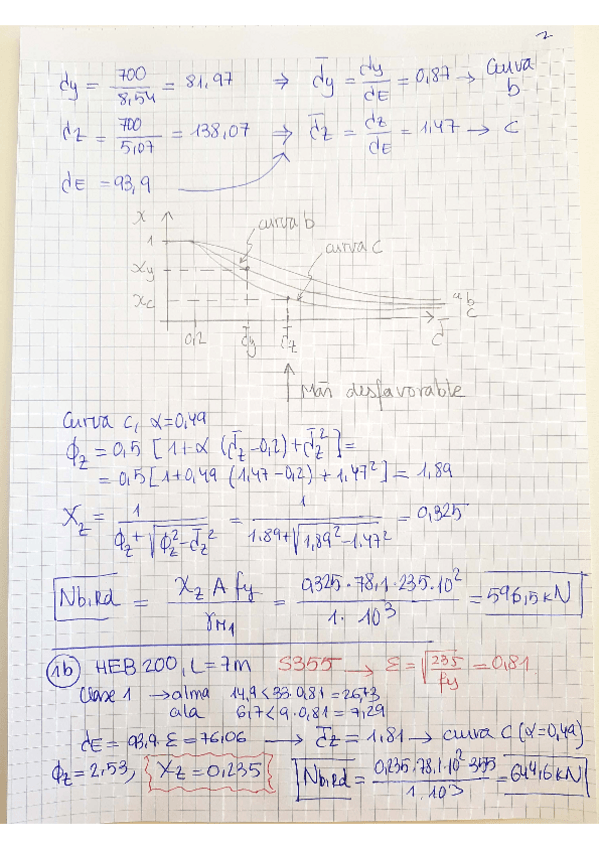 2
dy = 700/8,54 = 81,97 ⇒ d̄y = dy/dE = 0,87 → Curva b
dz = 700/5,07 = 138,07 ⇒ d̄z = dz/dE = 1,47 → c
dE = 93,9
X
curva b
1
curva c
Xy
Xc
a b
c
0,2 d̄y d̄z d̄
Más desfavorable
Curva c, α=0,49
ϕz = 0,5 [1+α (d̄z-0,2)+d̄z²] =
= 0,5 [1+0,49 (1,47-0,2)+1,47²] = 1,89
Xz = 1/(ϕz+√(ϕz²-d̄z²)) = 1/(1.89+√(1,89²-1.47²)) = 0,325
Nb,Rd = Xz A fy/γM1 = 0,325·78,1·235·10²/1·10³ = 596,5 kN
1b HEB 200, L=7m S355 → Ɛ=√(235/fy) = 0,81
Clase 1 → alma 14,9<33·0,81=26,73
ala 6,7<9·0,81=7,29
dE = 93,9·Ɛ = 76,06 → d̄z = 1,81 → curva C (α=0,49)
ϕz = 2,53, Xz = 0,235 Nb,Rd = 0,235·78,1·10²·355/1·10³ = 644,6 kN